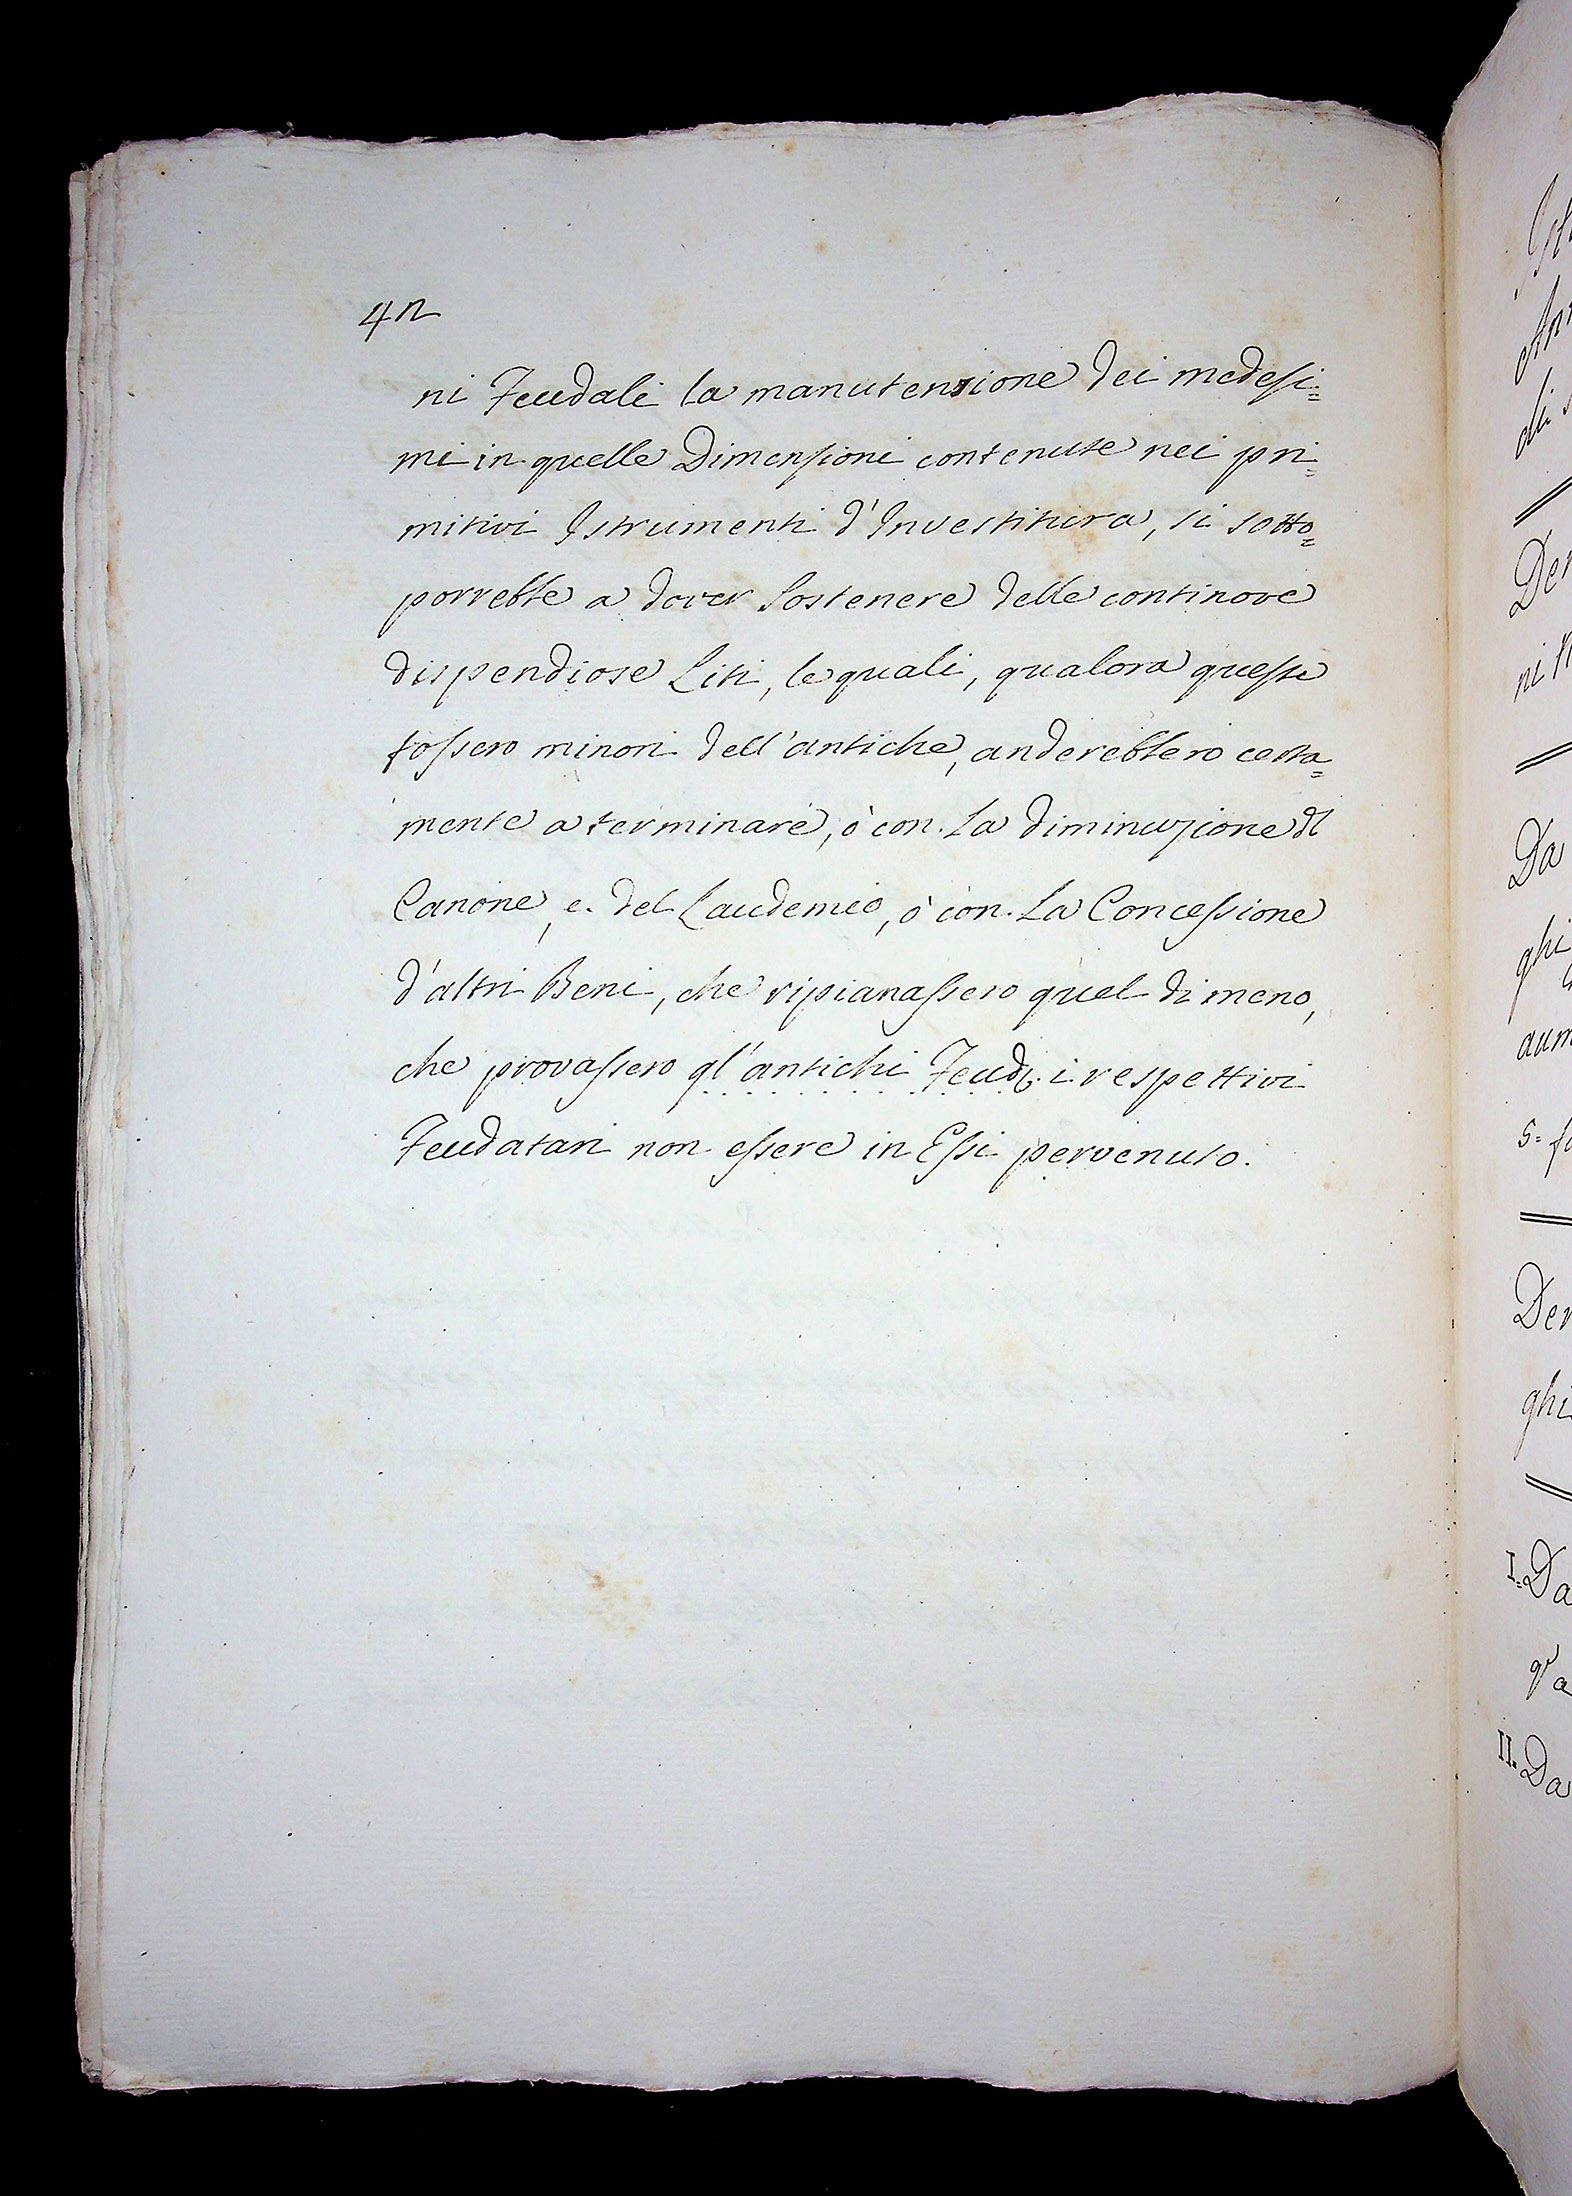 42
ni Feudali la manutenzione dei medesi=
mi in quelle Dimensioni contenute nei pri=
mitivi Istrumenti d'Investitura, si sotto=
porrebbe a dover sostenere delle continove
dispendiose Liti, le quali, qualora queste
fossero minori dell'antiche, anderebbero certa=
mente a terminare, ò con La diminuzione dl
Canone, e del Laudemio, ò con La Concessione
d'altri Beni, che ripianassero quel di meno,
che provassero gl'antichi Feudi i respettivi
Feudatari non essere in Essi pervenuto.
Da
ghi
aum
5=
ghi
I. Da
II. Da